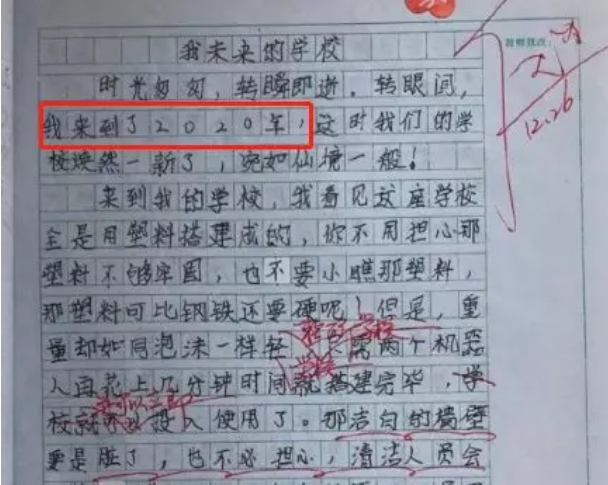 我未来的学校
教师批改：
时光匆匆，转瞬即逝。转眼间，
我来到了2020年，这时我们的学
校焕然一新了，宛如仙境一般！
12.26
来到我的学校，我看见这座学校
全是用塑料搭建成的，你不用担心那
塑料不够牢固，也不要小瞧那塑料，
那塑料可比钢铁还要硬呢！但是，重
量却如同泡沫一样轻，只需两个机器
学校
人再花上几分钟时间就搭建完毕，学
校就可以投入使用了。那洁白的墙壁
要是脏了，也不必担心，清洁人员会